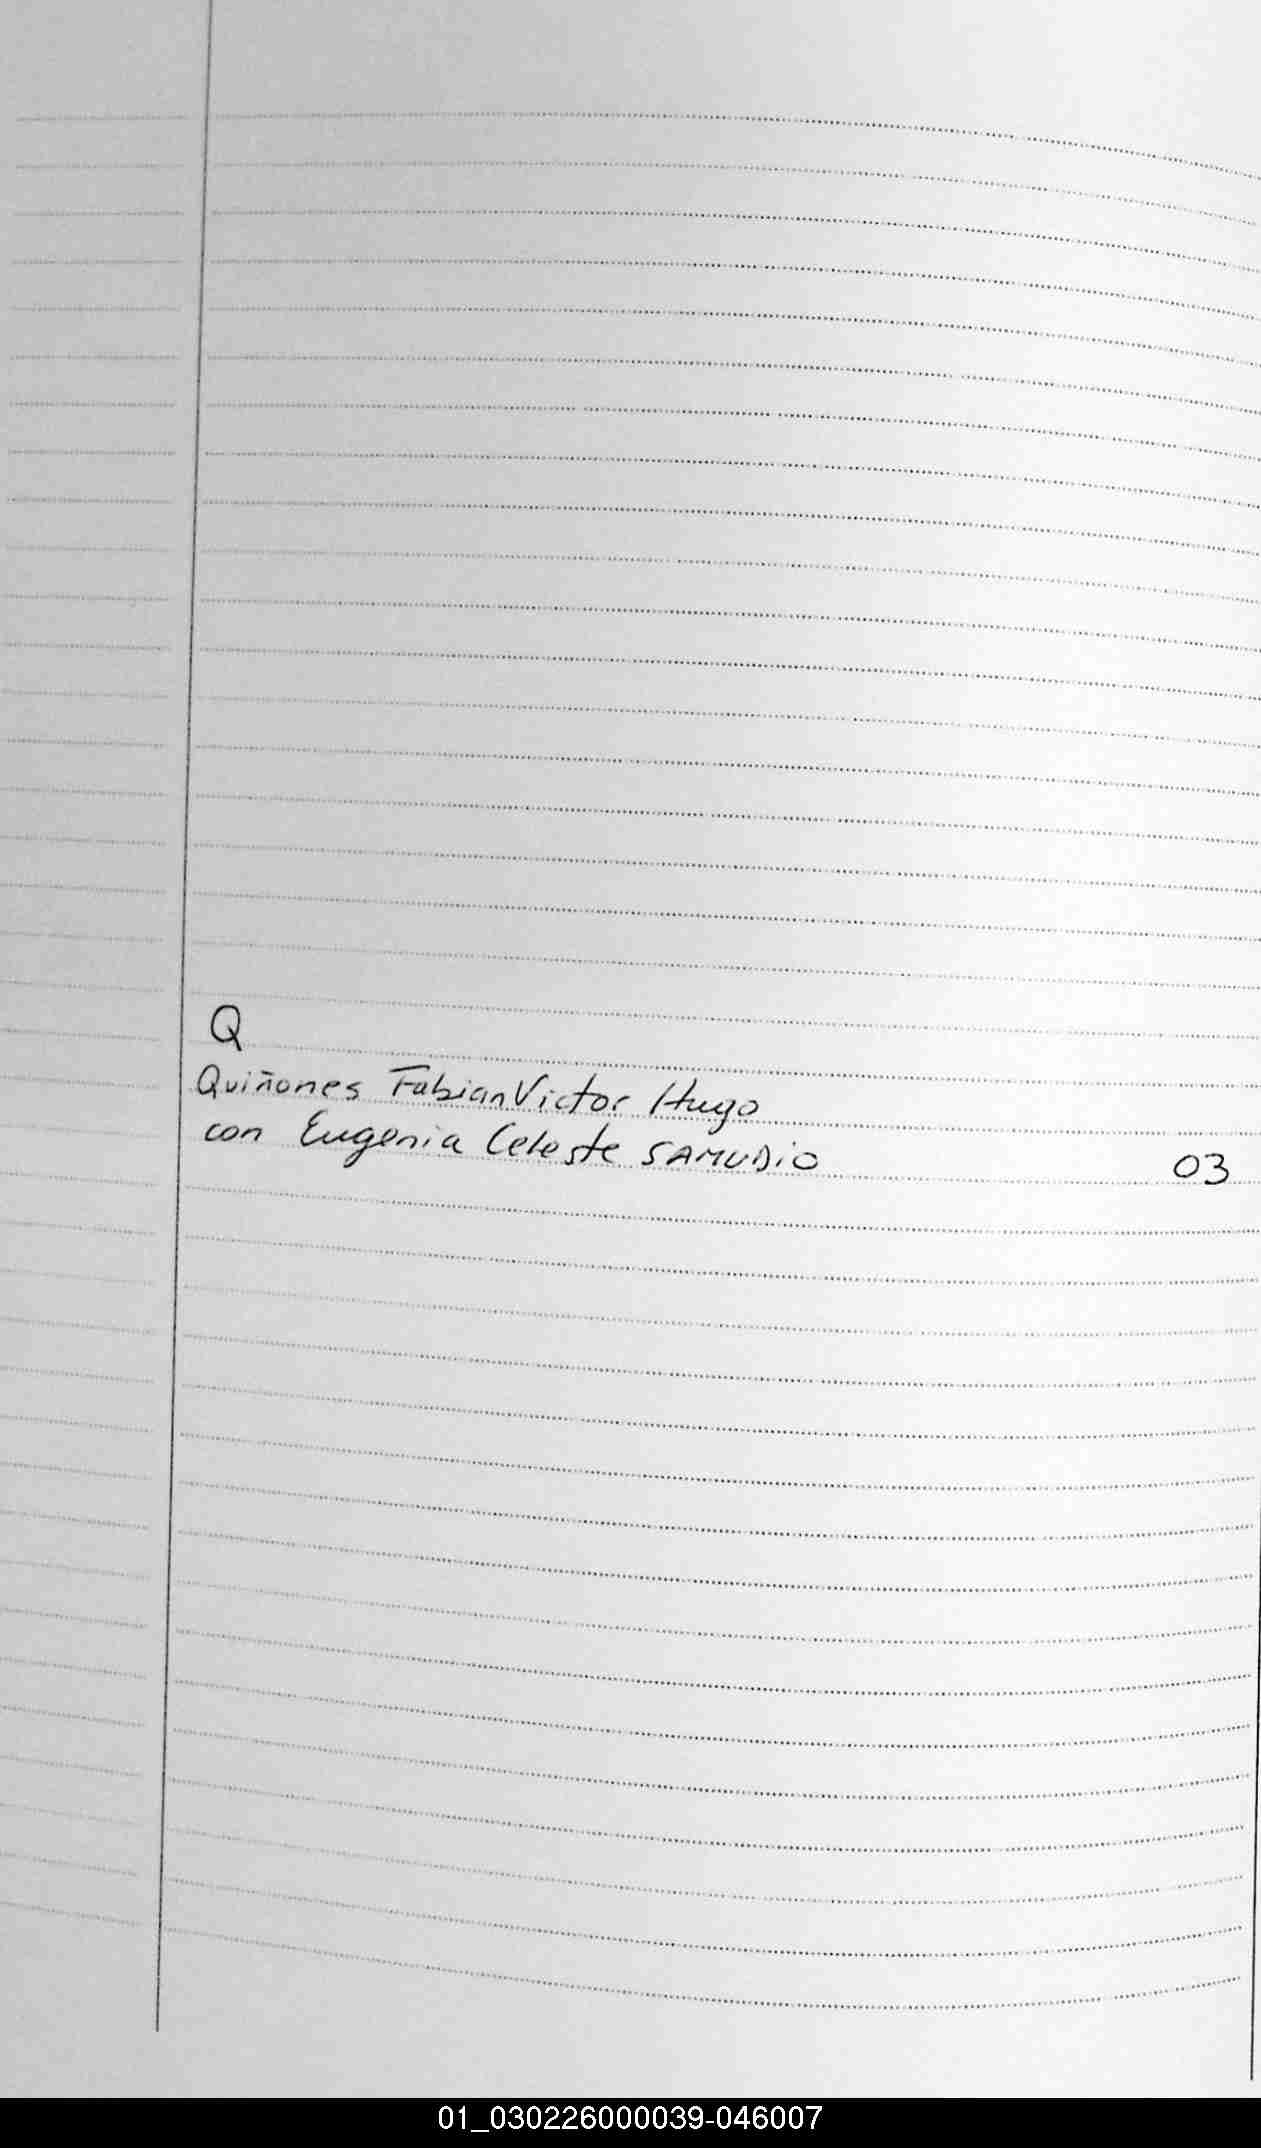 Q
Quiñones Fabian Victor Hugo
con Eugenia Celeste SAMUDIO 03
01_030226000039-046007